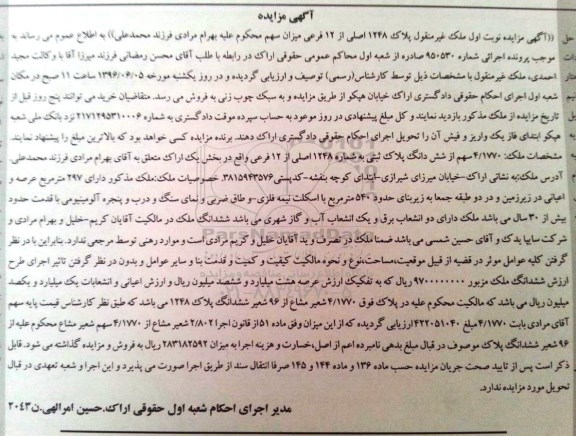 آگهی مزایده
((آگهی مزایده نوبت اول ملک غیرمنقول پلاک ۱۲۴۸ اصلی از ۱۲ فرعی میزان سهم محکوم علیه بهرام مرادی فرزند محمدعلی)) به اطلاع عموم می رساند به
موجب پرونده اجرائی شماره ۹۵۰۵۳۰ صادره از شعبه اول محاکم عمومی حقوقی اراک در رابطه با طلب آقای محسن رمضانی فرزند میرزا آقا با وکالت مجید
احمدی، ملک غیرمنقول با مشخصات ذیل توسط کارشناس(رسمی) توصیف و ارزیابی گردیده و در روز یکشنبه مورخه ۱۳۹۶/۰۶/۰۵ ساعت ۱۱ صبح در مکان
شعبه اول اجرای احکام حقوقی دادگستری اراک خیابان هپکو از طریق مزایده و به سبک چوب زنی به فروش می رسد. متقاضیان خرید می توانند پنج روز قبل از
تاریخ مزایده از ملک مذکور بازدید نمایند و کل مبلغ پیشنهادی در روز موعود به حساب سپرده موقت دادگستری به شماره ۲۱۷۱۲۹۵۳۱۰۰۰۶ نزد بانک ملی شعبه
هپکو ابتدای فاز یک واریز و فیش آن را تحویل اجرای احکام حقوقی دادگستری اراک دهند. برنده مزایده کسی خواهد بود که بالاترین مبلغ را پیشنهاد نمایند.
مشخصات ملک: ۴/۱۷۷۰ سهم از شش دانگ پلاک ثبتی به شماره ۱۲۴۸ اصلی از ۱۲ فرعی واقع در بخش یک اراک متعلق به آقای بهرام مرادی فرزند محمدعلی.
آدرس ملک:به نشانی اراک-خیابان میرزای شیرازی-ابتدای کوچه بنفشه-کدپستی ۳۸۱۵۹۴۳۵۷۶ خصوصیات ملک:ملک مذکور دارای ۲۹۷ مترمربع عرصه و
اعیانی در زیرزمین و در دو طبقه جمعا به زیربنای حدود ۵۴۰ مترمربع با اسکلت نیمه فلزی-طاق ضربی و نمای سنگ و درب و پنجره آلومینیومی با قدمت حدود
بیش از ۳۰ سال می باشد ملک دارای دو انشعاب برق و یک انشعاب آب و گاز شهری می باشد ششدانگ ملک در مالکیت آقایان کریم-خلیل و بهرام مرادی و
شرکت سایپا یدک و آقای حسین شمسی می باشد ضمنا ملک در تصرف و ید آقایان خلیل و کریم مرادی است و موارد رهنی توسط مرجعی ندارد. بنابراین با در نظر
گرفتن کلیه عوامل موثر در قضیه از قبیل موقعیت،مساحت،نوع و نحوه مالکیت کیفیت و کمیت و قدمت بنا و سایر عوامل و بدون در نظر گرفتن تاثیر اجرای طرح
ارزش ششدانگ ملک مزبور ۹۷۰۰۰۰۰۰۰۰ ریال که به تفکیک ارزش عرصه هشت میلیارد و ششصد میلیون ریال و ارزش اعیانی و انشعابات یک میلیارد و یکصد
میلیون ریال می باشد که مالکیت محکوم علیه در پلاک فوق ۴/۱۷۷۰ شعیر مشاع از ۹۶ شعیر ششدانگ پلاک ۱۲۴۸ می باشد که طبق نظر کارشناس قیمت پایه سهم
آقای مرادی بابت ۴/۱۷۷۰ مبلغ ۴۲۲۰۵۱۰۴۰ ارزیابی گردیده که از این میزان وفق ماده ۵۱ از قانون اجرا ۲/۸۰۲ شعیر مشاع از ۴/۱۷۷۰ سهم شعیر مشاع محکوم علیه از
۹۶ شعیر ششدانگ پلاک موصوف در قبال مبلغ بدهی نامبرده اعم از اصل،خسارت و هزینه اجرا به میزان ۲۸۳۱۸۲۵۹۲ ریال به فروش و مزایده گذاشته می شود. قابل
ذکر است پس از تایید صحت جریان مزایده حسب ماده ۱۳۶ و ماده ۱۴۴ و ۱۴۵ صرفا انتقال سند از طریق اجرا صورت می پذیرد و این اجرا و شعبه تعهدی در قبال
تحویل مورد مزایده ندارد.
مدیر اجرای احکام شعبه اول حقوقی اراک.حسین امرالهی.ن۲۰۴۳